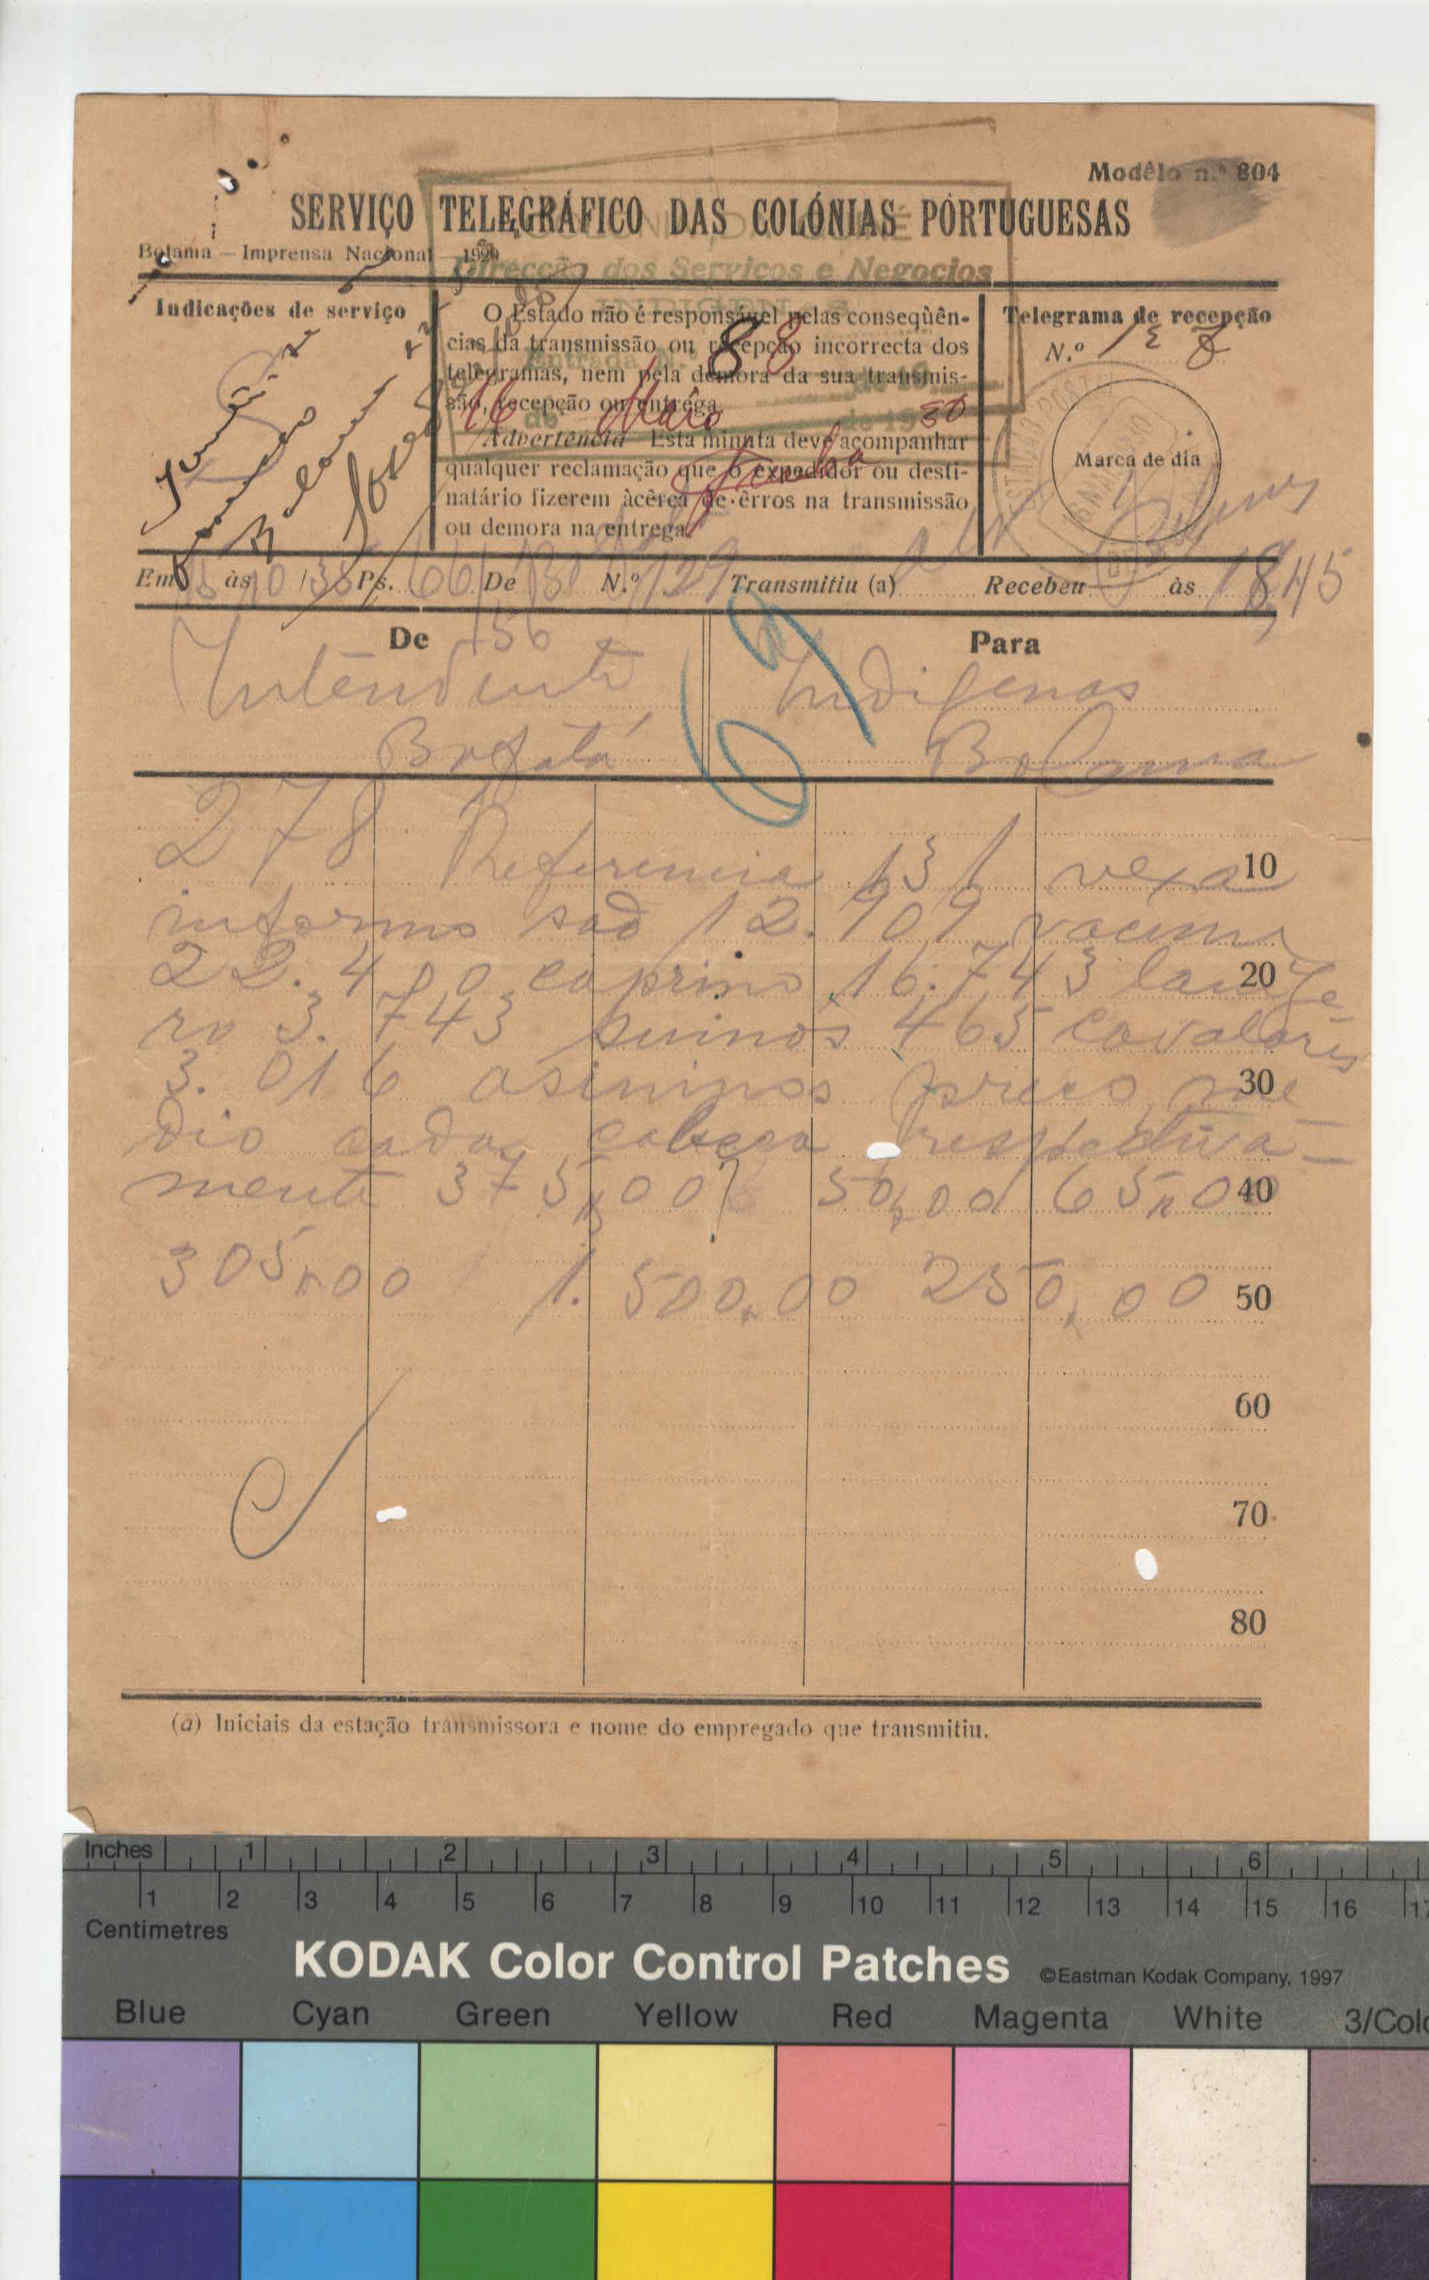 Modêlo n.º 804
SERVIÇO TELEGRÁFICO DAS COLÓNIAS PORTUGUESAS
Bolama — Imprensa Nacional — 1929
Direcção dos Serviços e Negocios
INDIGENAS
Indicações de serviço
O Estado não é responsável pelas conseqüên-
cias da transmissão ou recepção incorrecta dos
telegramas, nem pela demora da sua transmis-
são, recepção ou entrêga.
Advertência Esta minuta deve acompanhar
qualquer reclamação que o expedidor ou desti-
natário fizerem àcêrca de êrros na transmissão
ou demora na entrega.
Entrada N.º 88
16 de Maio de 1930
Telegrama de recepção
N.º
Marca de dia
Em às Ps. De N.º Transmitiu (a) Recebeu às 18,45
De
Para
Intendente
Bafatá
Indigenas
Bolama
69
278 Referencia 131 vexa 10
informo sao 12.909 vacum
22.400 caprino 16.743 lanige 20
ro 3.743 suinos 465 cavalares
3.016 asininos preco me 30
dio cada cabeca respectiva-
mente 375,00 50,00 65,00 40
305,00 1.500,00 250,00 50
60
70
80
(a) Iniciais da estação transmissora e nome do empregado que transmitiu.
Inches 1 2 3 4 5 6
1 2 3 4 5 6 7 8 9 10 11 12 13 14 15 16 17
Centimetres
KODAK Color Control Patches ©Eastman Kodak Company, 1997
Blue Cyan Green Yellow Red Magenta White 3/Colo